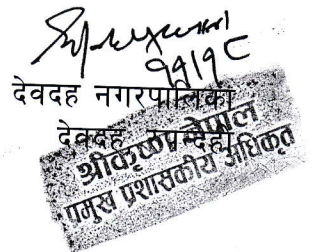 ११।१८
देवदह नगरपालिका
देवदह रुपन्देही
श्रीकृष्ण नेपाल
प्रमुख प्रशासकीय अधिकृत